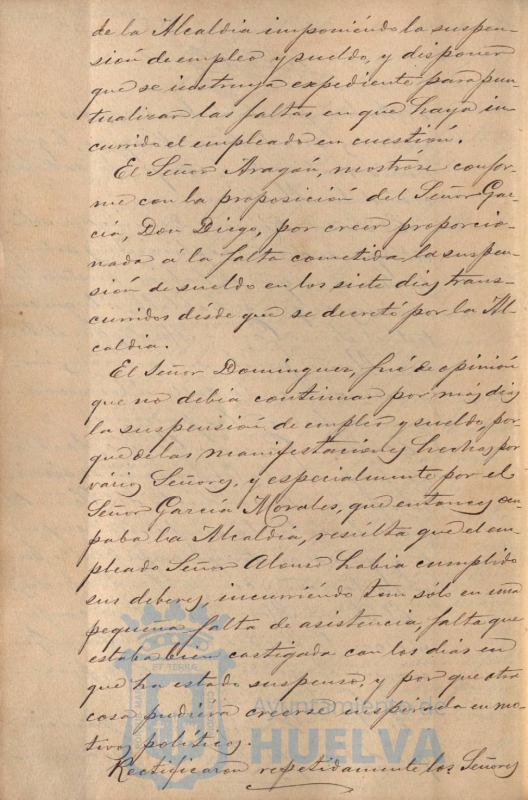 de la Alcaldia imponiéndo la suspen-
sión de empleo y sueldo, y disponer
que se instruya expediente para pun-
tualizar las faltas en que haya in-
currido el empleado en cuestión.
El Señor Aragón, mostróse confor-
me con la proposición del Señor Gar-
cía, Don Diego, por creer proporcio-
nada á la falta cometida la suspen-
sión de sueldo en los siete dias trans-
curridos désde que se decretó por la Al-
caldia.
El Señor Dominguez, fué de opinión
que no debia continuar por más dias
la suspensión de empleo y sueldo, por
que de las manifestaciones hechas por
vários Señores, y especialmente por el
Señor García Morales, que entonces ocu-
paba la Alcaldia, resulta que el em-
pleado Señor Alonso habia cumplido
sus deberes, incurriéndo tan sólo en una
pequeña falta de asistencia, falta que
estaba bien castigada con los dias en
que ha estado suspenso, y por que otra
cosa pudiera creerse inspirada en mo-
tivos políticos.
Rectificaron repetidamente los Señores
Ayuntamiento de
HUELVA